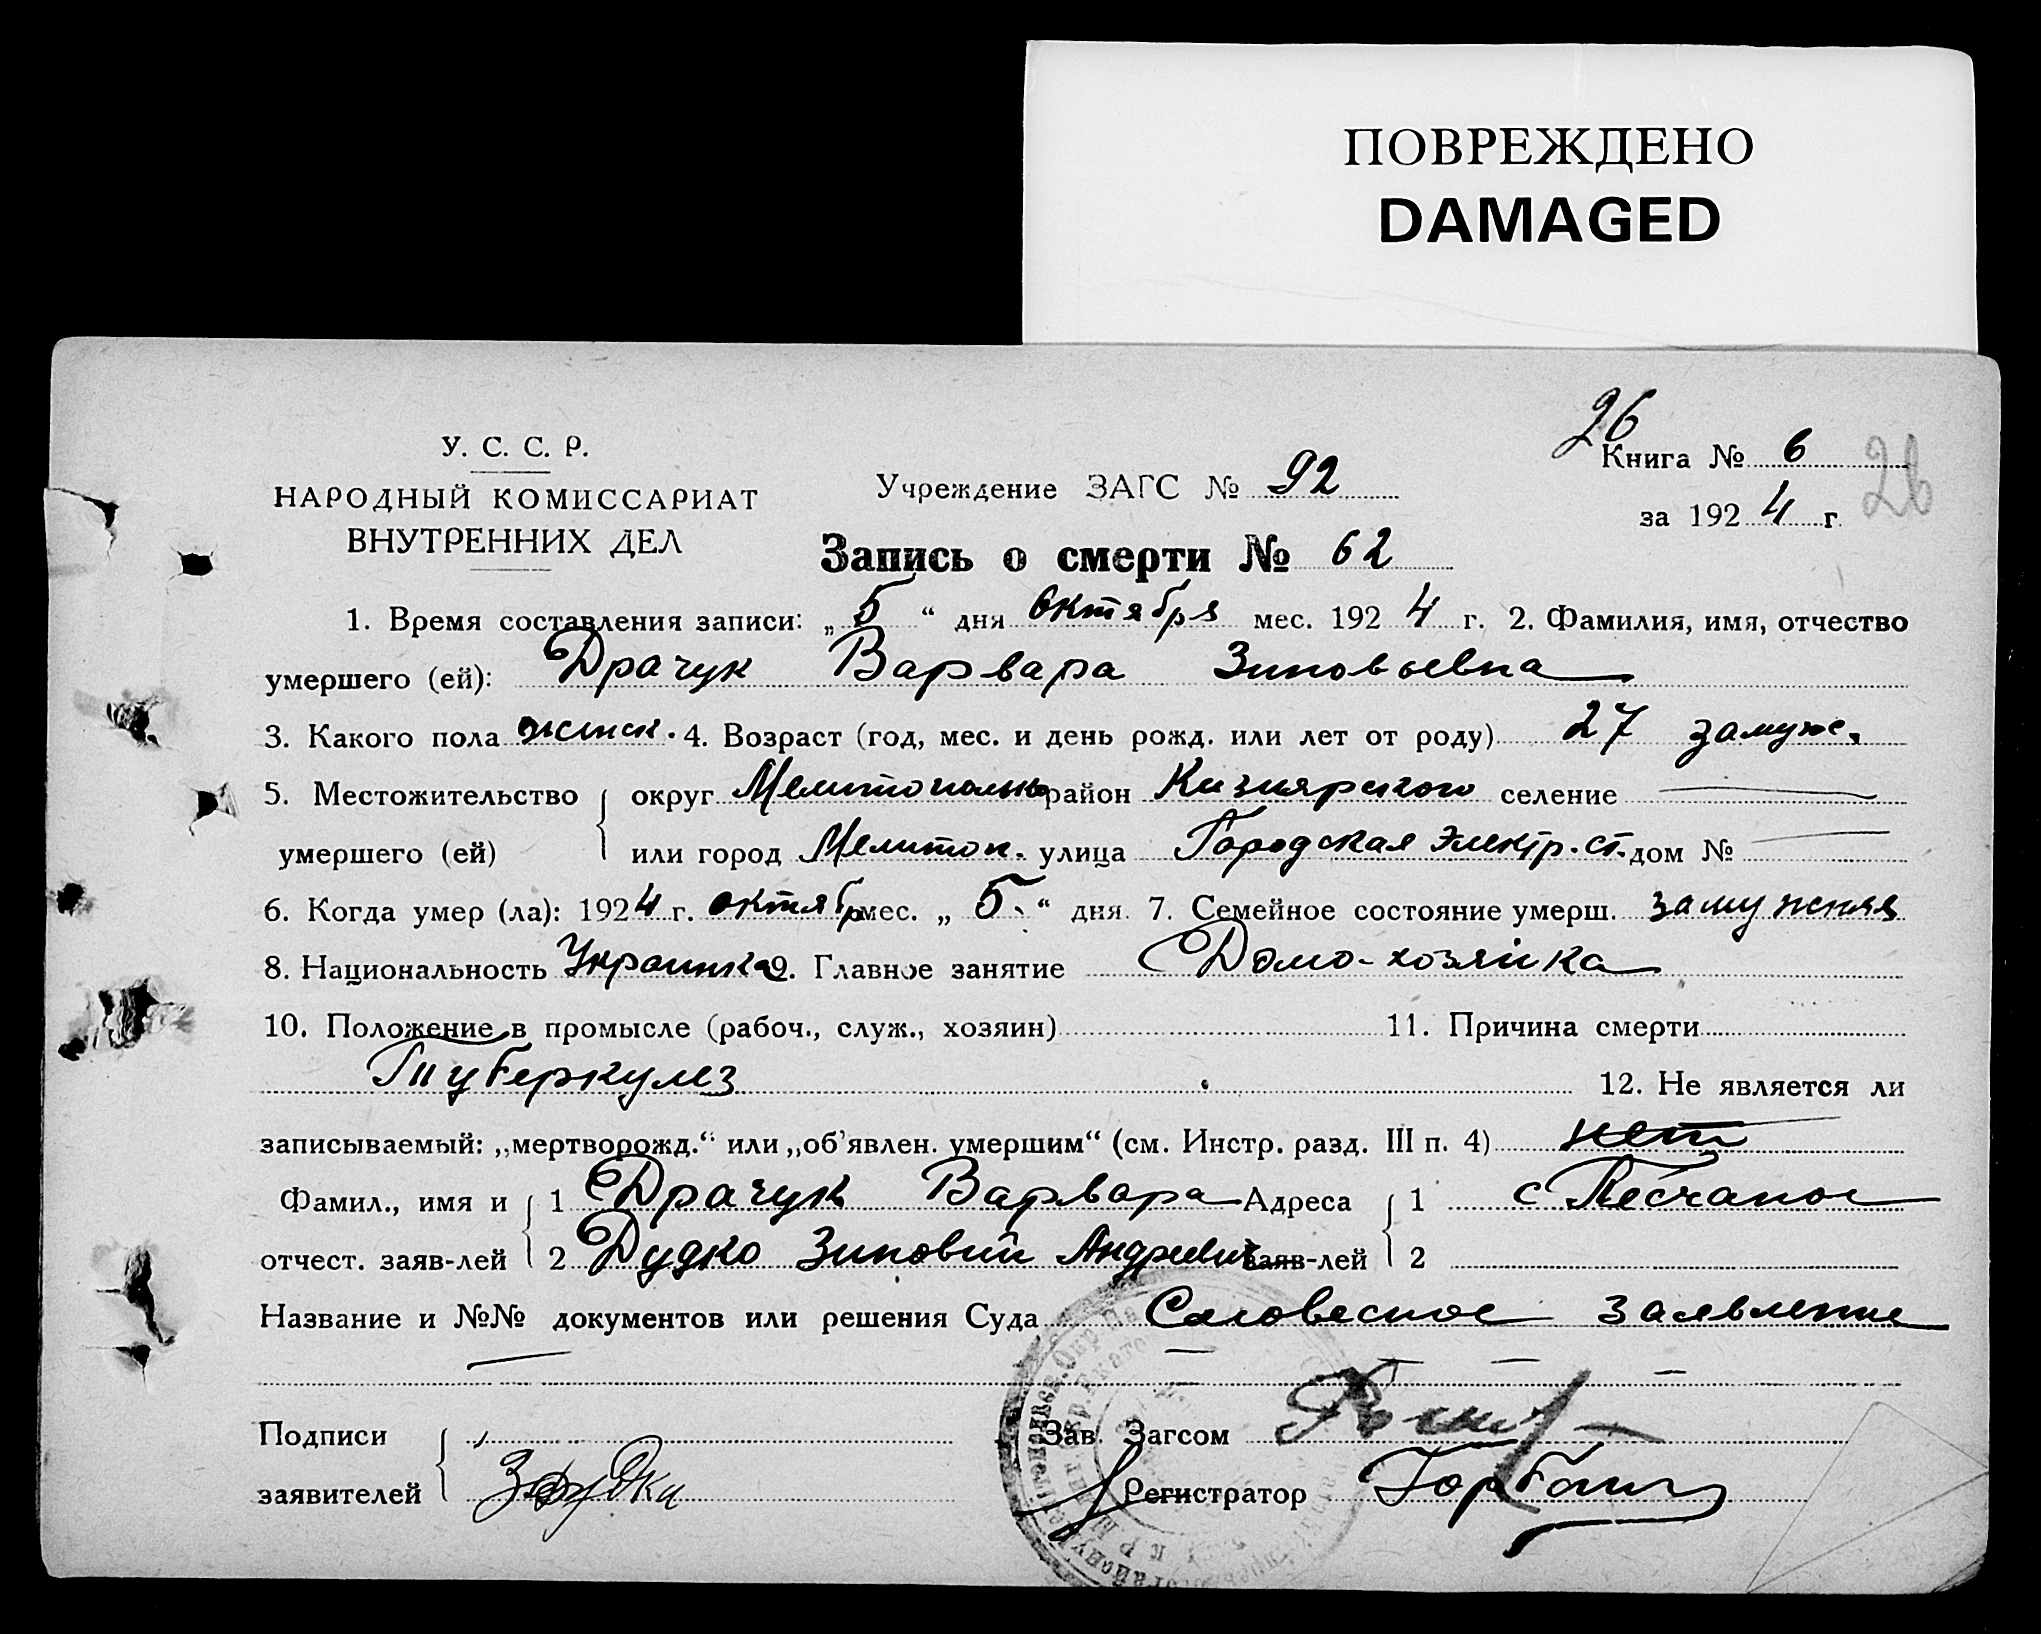 ПОВРЕЖДЕНО
DAMAGED
26
У. С. С. Р.
НАРОДНЫЙ КОМИССАРИАТ
ВНУТРЕННИХ ДЕЛ
Учреждение ЗАГС № 92
Книга № 6
26
за 1924 г.
Запись о смерти № 62
1. Время составления записи: „5“ дня октября мес. 1924 г. 2. Фамилия, имя, отчество
умершего (ей): Драчук Варвара Зиновьевна
3. Какого пола женск. 4. Возраст (год, мес. и день рожд. или лет от роду) 27 замуж.
5. Местожительство округ район Кизиярского селение —
умершего (ей) или город Мелитоп. улица Городская электр. ст. дом № —
6. Когда умер (ла): 1924 г. октябр мес. „5“ дня. 7. Семейное состояние умерш. замужняя
8. Национальность Украинка 9. Главное занятие Домо-хозяйка
10. Положение в промысле (рабоч., служ., хозяин) 11. Причина смерти
Туберкулез 12. Не является ли
записываемый: „мертворожд.“ или „об'явлен. умершим“ (см. Инстр. разд. III п. 4) нет
Фамил., имя и 1 Драчук Варвара Адреса 1 с Песчаное
отчест. заяв-лей 2 Дудко Зиновий Андреевич заяв-лей 2
Название и №№ документов или решения Суда Словесное заявление
—
Подписи Зав. Загсом
заявителей Регистратор